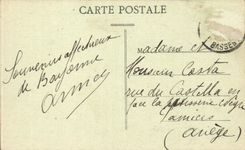 CARTE POSTALE
BASSES
Souvenirs affectueux
de Bayonne
Madame et
Monsieur Costa
rue du Castella en
face la
Pamiers
(Ariège)